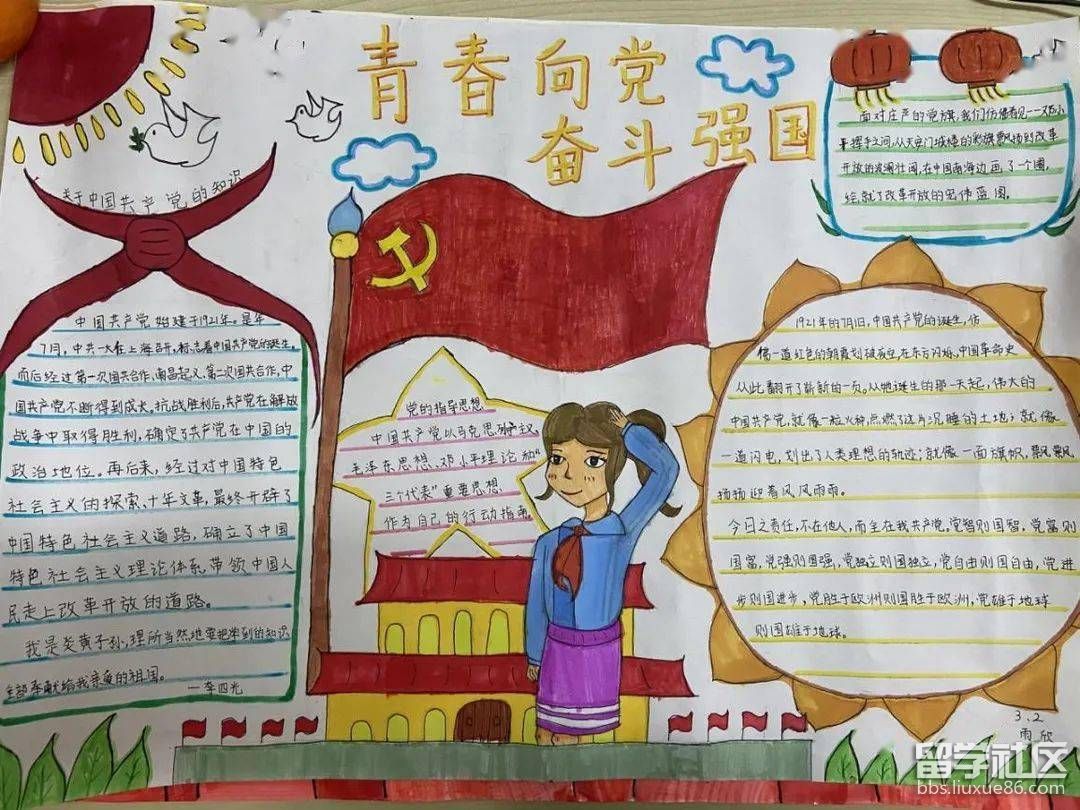 青春向党
奋斗强国
关于中国共产党的知识
中国共产党始建于1921年。是年
7月,中共一大在上海召开,标志着中国共产党的诞生。
而后经过第一次国共合作,南昌起义、第二次国共合作,中
国共产党不断得到成长。抗战胜利后,共产党在解放
战争中取得胜利,确定了共产党在中国的
政治地位。再后来,经过对中国特色
社会主义的探索、十年文革,最终开辟了
中国特色社会主义道路,确立了中国
特色社会主义理论体系,带领中国人
民走上改革开放的道路。
我是炎黄子孙,理所当然地要把学到的知识
全部奉献给我亲爱的祖国。
—李四光
党的指导思想
中国共产党以马克思列主义、
毛泽东思想、邓小平理论和“
三个代表”重要思想
作为自己的行动指南
面对庄严的党旗,我们仿佛看见——邓小
平挥手之间,从天安门城楼的彩旗飘扬到改革
开放的波澜壮阔,在中国南海边画了一个圈,
绘就了改革开放的宏伟蓝图。
1921年的7月1日,中国共产党的诞生,仿
佛一道红色的朝霞划破夜空在东方闪烁,中国革命史
从此翻开了新新的一页。从她诞生的那一天起,伟大的
中国共产党,就像一粒火种点燃了这片沉睡的土地;就像
一道闪电,划出了人类理想的轨迹;就像一面旗帜,飘飘
扬扬迎着风风雨雨。
今日之责任,不在他人,而全在我共产党,党智则国智,党富则
国富,党强则国强,党独立则国独立,党自由则国自由,党进
步则国进步,党胜于欧洲则国胜于欧洲,党雄于地球
则国雄于地球。
3.2
雨欣
留学社区
bbs.liuxue86.com